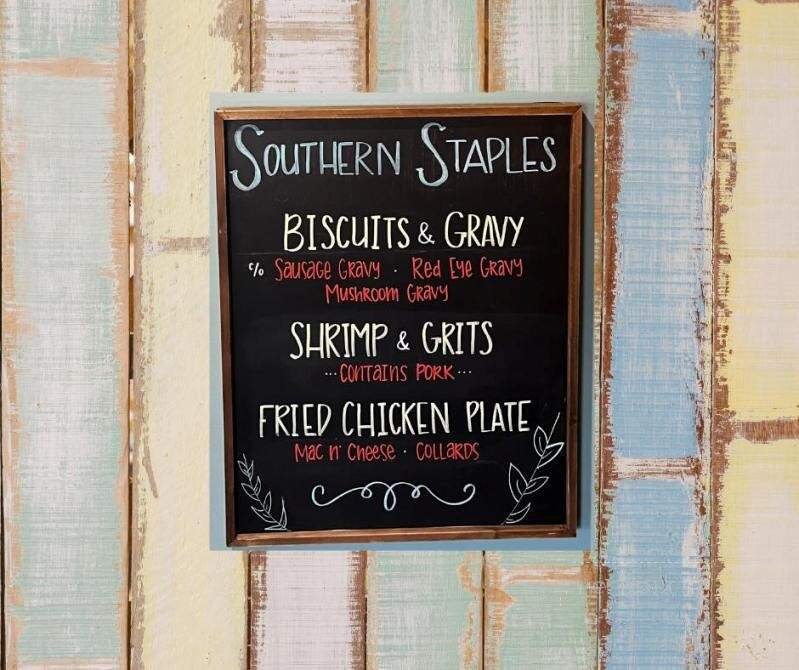 Southern Staples
BISCUITS & GRAVY
c/o Sausage Gravy · Red Eye Gravy
Mushroom Gravy
SHRIMP & GRITS
...Contains PORK...
FRIED CHICKEN PLATE
Mac n' Cheese · COLLARDS